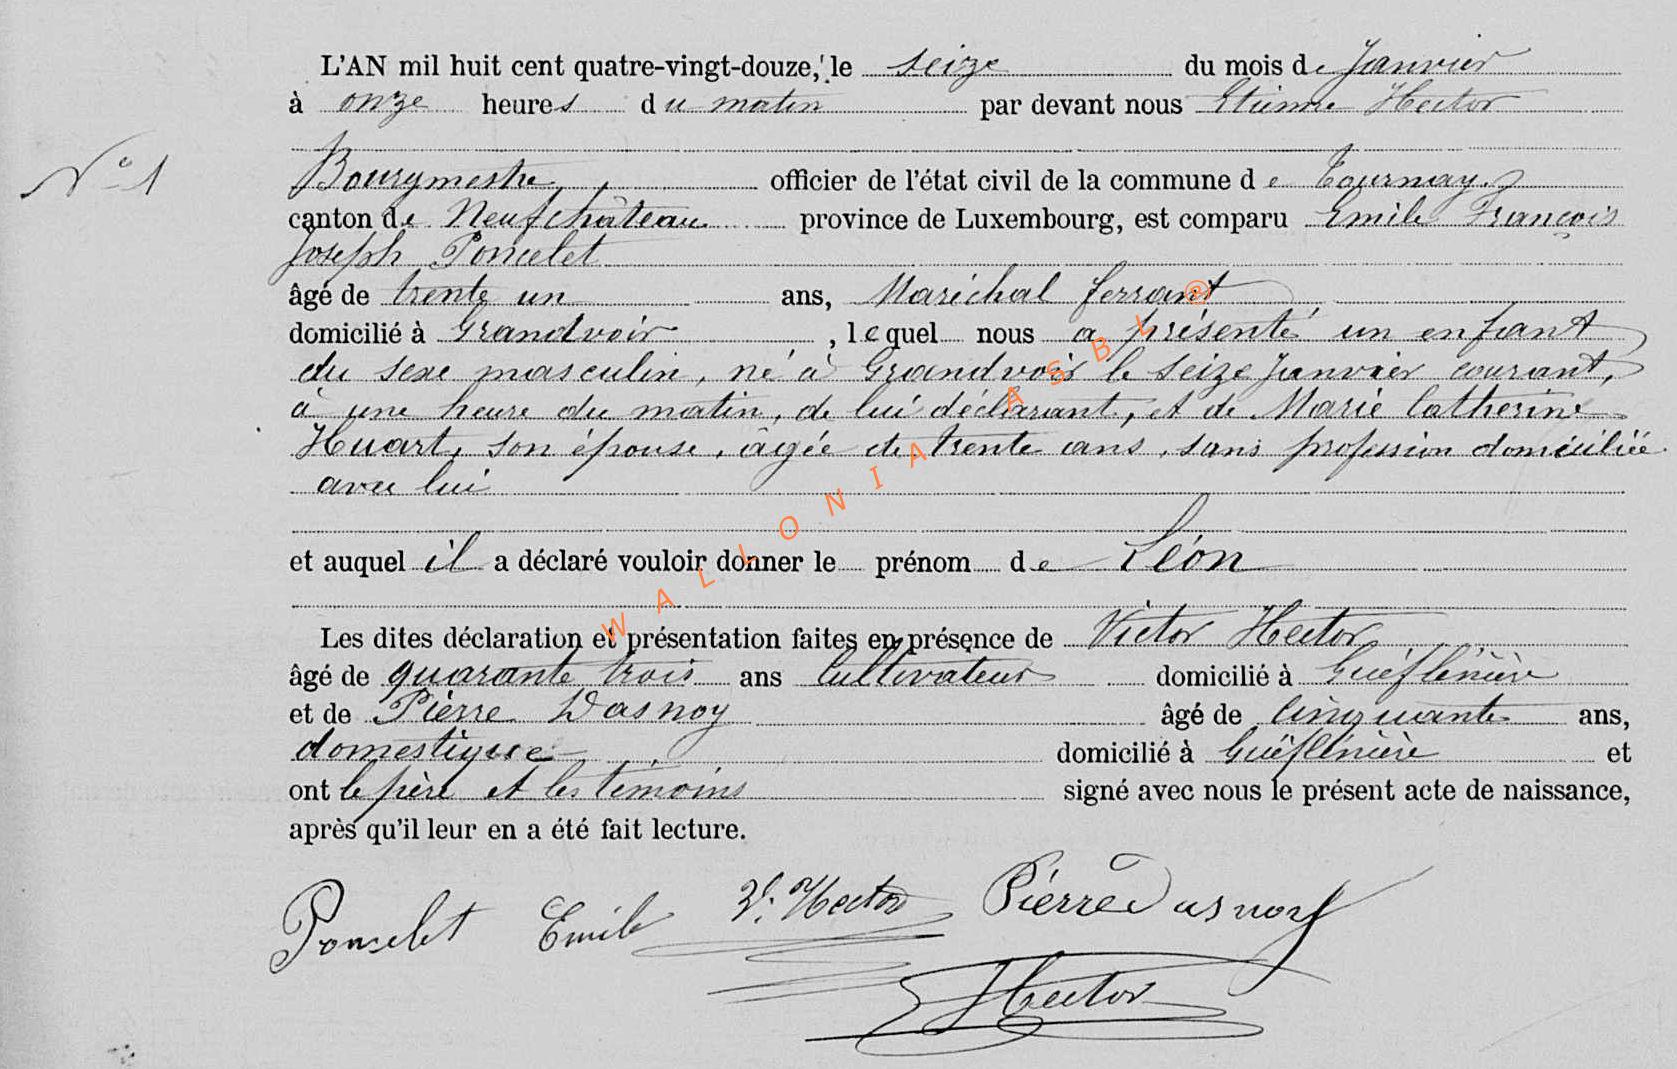 L'AN mil huit cent quatre-vingt-douze, le seize du mois de Janvier
à onze heures du matin par devant nous Etienne Hector
N° 1
Bourgmestre, officier de l'état civil de la commune de Tournay,
canton de Neufchâteau province de Luxembourg, est comparu Emile François
Joseph Poncelet
âgé de trente un ans, Maréchal ferrant
domicilié à Grandvoir, lequel nous a présenté un enfant
du sexe masculin, né à Grandvoir le seize Janvier courant,
à une heure du matin, de lui déclarant, et de Marie Catherine
Huart, son épouse, âgée de trente ans, sans profession domiciliée
avec lui
et auquel il a déclaré vouloir donner le prénom de Léon
Les dites déclaration et présentation faites en présence de Victor Hector,
âgé de quarante trois ans Cultivateur domicilié à
et de Pierre Dasnoy âgé de cinquante ans,
domestique domicilié à et
ont le père et les témoins signé avec nous le présent acte de naissance,
après qu'il leur en a été fait lecture.
Poncelet Emile V. Hector Pierre Dasnoy
Hector
WALLONIA ASBL ®